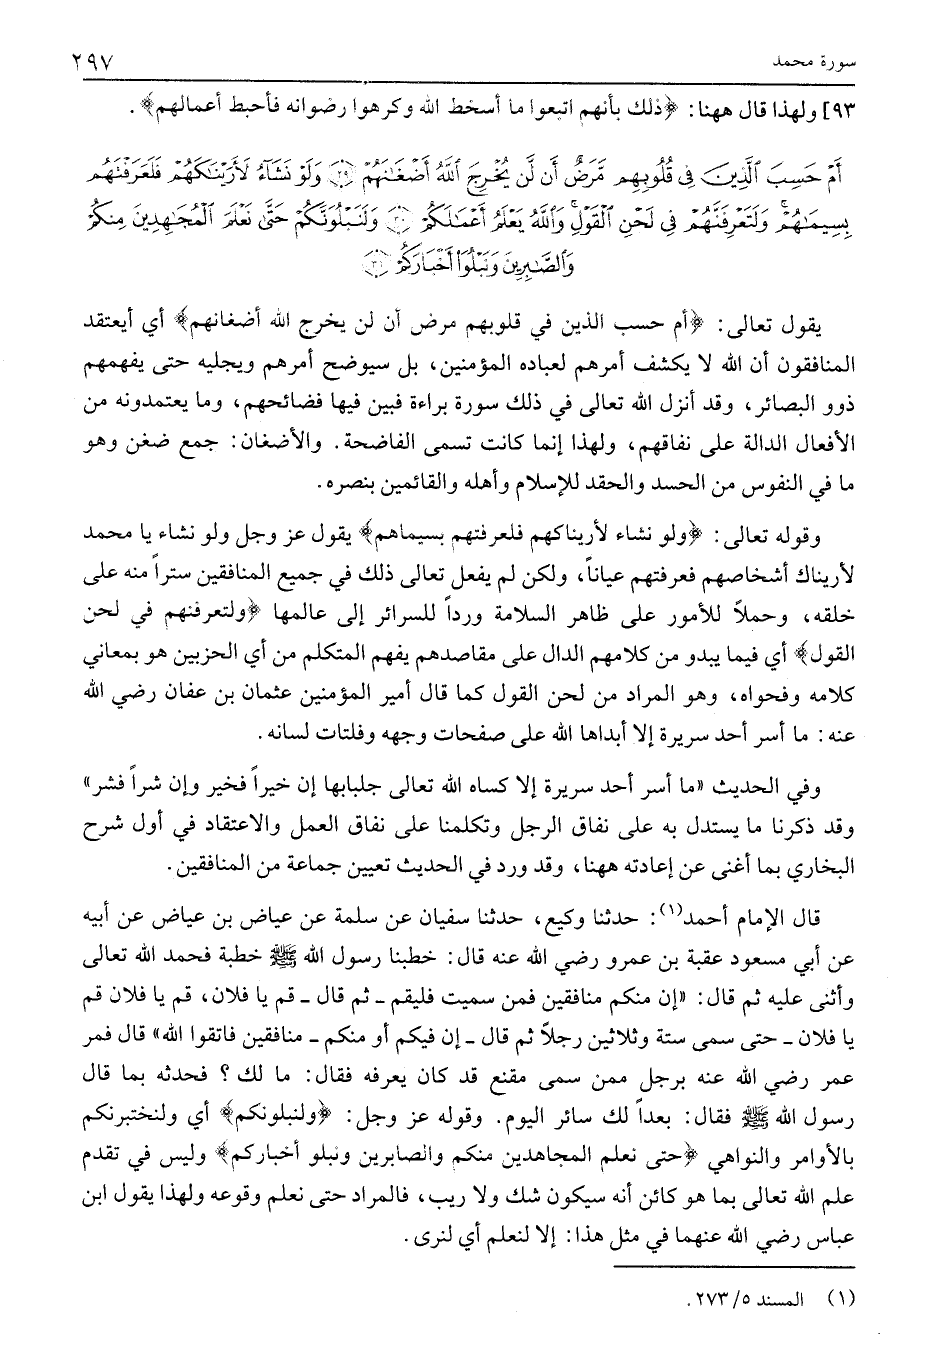 سورة محمد ٢٩٧
٩٣] ولهذا قال ههنا: ﴿ذلك بأنهم اتبعوا ما أسخط الله وكرهوا رضوانه فأحبط أعمالهم﴾.
أَمْ حَسِبَ ٱلَّذِينَ فِي قُلُوبِهِم مَّرَضٌ أَن لَّن يُخْرِجَ ٱللَّهُ أَضْغَٰنَهُمْ ﴿٢٩﴾ وَلَوْ نَشَآءُ لَأَرَيْنَٰكَهُمْ فَلَعَرَفْتَهُم
بِسِيمَٰهُمْ ۚ وَلَتَعْرِفَنَّهُمْ فِي لَحْنِ ٱلْقَوْلِ ۚ وَٱللَّهُ يَعْلَمُ أَعْمَٰلَكُمْ ﴿٣٠﴾ وَلَنَبْلُوَنَّكُمْ حَتَّىٰ نَعْلَمَ ٱلْمُجَٰهِدِينَ مِنكُمْ
وَٱلصَّٰبِرِينَ وَنَبْلُوَا۟ أَخْبَارَكُمْ ﴿٣١﴾
يقول تعالى: ﴿أم حسب الذين في قلوبهم مرض أن لن يخرج الله أضغانهم﴾ أي أيعتقد
المنافقون أن الله لا يكشف أمرهم لعباده المؤمنين، بل سيوضح أمرهم ويجليه حتى يفهمهم
ذوو البصائر، وقد أنزل الله تعالى في ذلك سورة براءة فبين فيها فضائحهم، وما يعتمدونه من
الأفعال الدالة على نفاقهم، ولهذا إنما كانت تسمى الفاضحة. والأضغان: جمع ضغن وهو
ما في النفوس من الحسد والحقد للإسلام وأهله والقائمين بنصره.
وقوله تعالى: ﴿ولو نشاء لأريناكهم فلعرفتهم بسيماهم﴾ يقول عز وجل ولو نشاء يا محمد
لأريناك أشخاصهم فعرفتهم عياناً، ولكن لم يفعل تعالى ذلك في جميع المنافقين ستراً منه على
خلقه، وحملاً للأمور على ظاهر السلامة ورداً للسرائر إلى عالمها ﴿ولتعرفنهم في لحن
القول﴾ أي فيما يبدو من كلامهم الدال على مقاصدهم يفهم المتكلم من أي الحزبين هو بمعاني
كلامه وفحواه، وهو المراد من لحن القول كما قال أمير المؤمنين عثمان بن عفان رضي الله
عنه: ما أسر أحد سريرة إلا أبداها الله على صفحات وجهه وفلتات لسانه.
وفي الحديث «ما أسر أحد سريرة إلا كساه الله تعالى جلبابها إن خيراً فخير وإن شراً فشر»
وقد ذكرنا ما يستدل به على نفاق الرجل وتكلمنا على نفاق العمل والاعتقاد في أول شرح
البخاري بما أغنى عن إعادته ههنا، وقد ورد في الحديث تعيين جماعة من المنافقين.
قال الإمام أحمد(١): حدثنا وكيع، حدثنا سفيان عن سلمة عن عياض بن عياض عن أبيه
عن أبي مسعود عقبة بن عمرو رضي الله عنه قال: خطبنا رسول الله ﷺ خطبة فحمد الله تعالى
وأثنى عليه ثم قال: «إن منكم منافقين فمن سميت فليقم ـ ثم قال ـ قم يا فلان، قم يا فلان قم
يا فلان ـ حتى سمى ستة وثلاثين رجلاً ثم قال ـ إن فيكم أو منكم ـ منافقين فاتقوا الله» قال فمر
عمر رضي الله عنه برجل ممن سمى مقنع قد كان يعرفه فقال: ما لك؟ فحدثه بما قال
رسول الله ﷺ فقال: بعداً لك سائر اليوم. وقوله عز وجل: ﴿ولنبلونكم﴾ أي ولنختبرنكم
بالأوامر والنواهي ﴿حتى نعلم المجاهدين منكم والصابرين ونبلو أخباركم﴾ وليس في تقدم
علم الله تعالى بما هو كائن أنه سيكون شك ولا ريب، فالمراد حتى نعلم وقوعه ولهذا يقول ابن
عباس رضي الله عنهما في مثل هذا: إلا لنعلم أي لنرى.
(١) المسند ٥/ ٢٧٣.